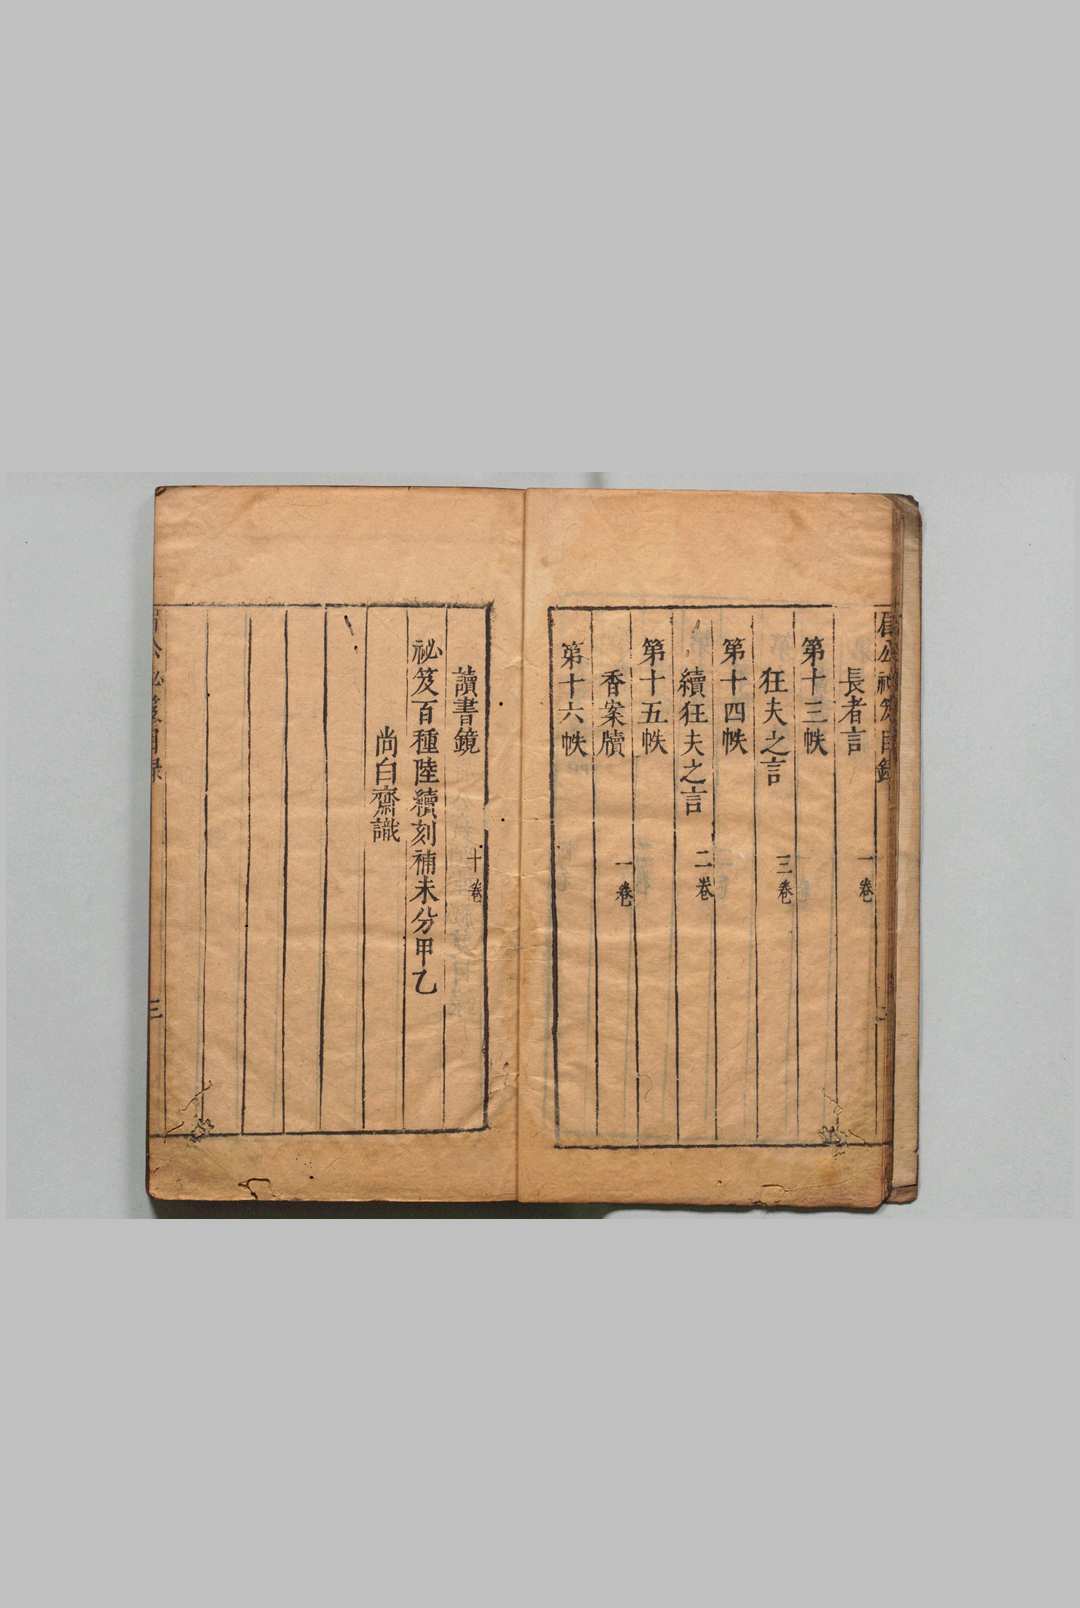 眉公祕笈目錄
長者言 一卷
第十三帙
狂夫之言 三卷
第十四帙
續狂夫之言 二卷
第十五帙
香案牘 一卷
第十六帙
讀書鏡 十卷
祕笈百種陸續刻補未分甲乙
尚白齋識
三